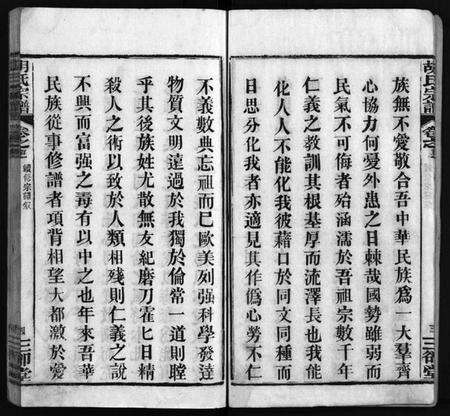 胡氏宗譜
卷之首
三
三
御
堂
族無不愛敬合吾中華民族爲一大羣齊
心協力何憂外患之日棘哉國勢雖弱而
民氣不可侮者殆涵濡於吾祖宗數千年
仁義之教訓其根基厚而流澤長也我能
化人人不能化我彼藉口於同文同種而
日思分化我者亦適見其作僞心勞不仁
不義數典忘祖而已歐美列强科學發達
物質文明遠過於我獨於倫常一道則瞠
乎其後族姓尤散無友紀磨刀霍匕日精
殺人之術以致於人類相殘則仁義之説
不興而富强之毒有以中之也年來吾華
民族從事修譜者項背相望大都激於愛
胡氏宗譜
卷之首
續修宗譜叙
四
三
御
堂